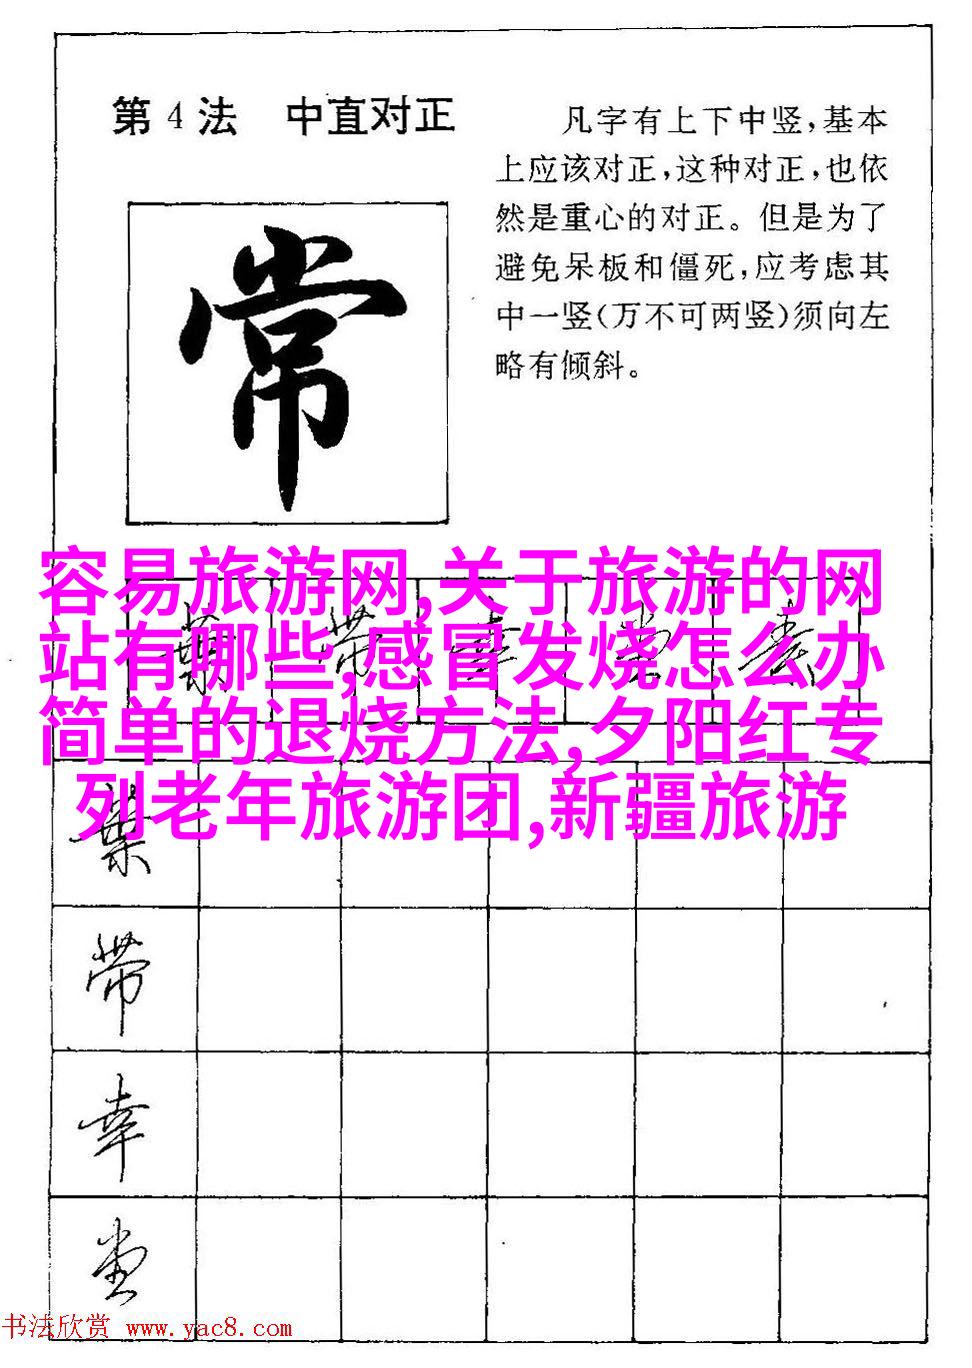 第4法 中直对正
凡字有上下中竖,基本
上应该对正,这种对正,也依
然是重心的对正。但是为了
避免呆板和僵死,应考虑其
中一竖(万不可两竖)须向左
略有倾斜。
常
容易旅游网,关于旅游的网
站有哪些,感冒发烧怎么办
简单的退烧方法,夕阳红专
列老年旅游团,新疆旅游
带
幸
堂
书法欣赏 www.yac8.com